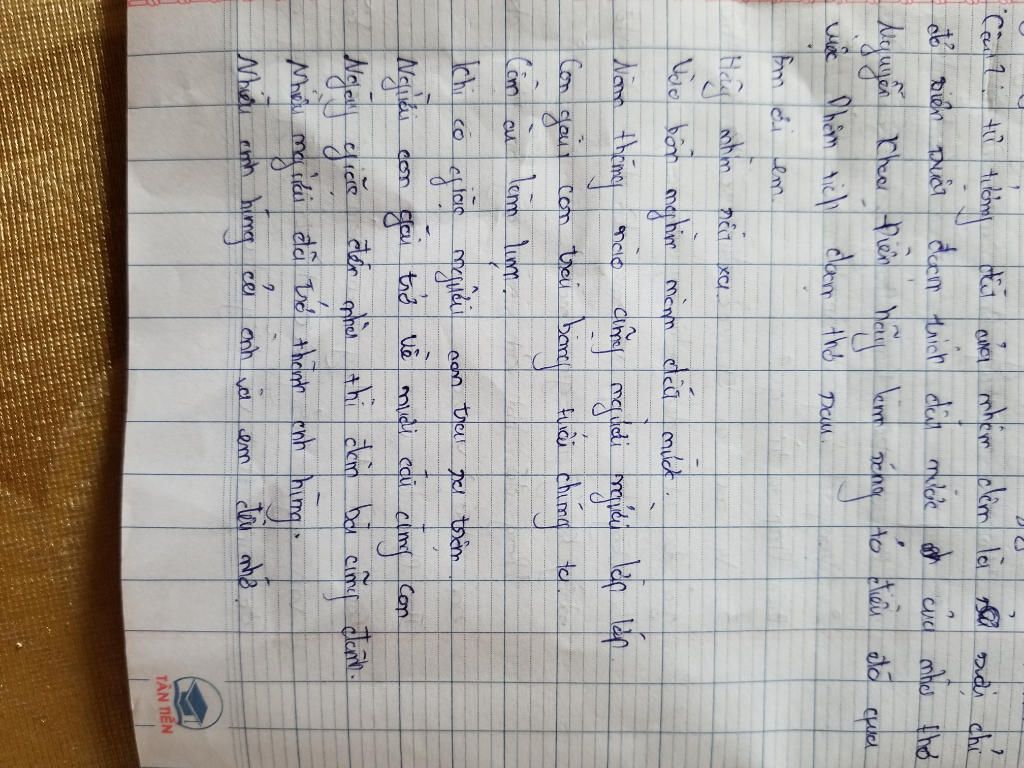 Câu 2: tư tưởng đất của nhân dân là sợi chỉ
đỏ xiên suốt đoạn trích đất nước của nhà thơ
Nguyễn Khoa Điềm hãy làm sáng tỏ điều đó qua
việc Phân tích đoạn thơ sau.
Em ơi em
Hãy nhìn rất xa
Vào bốn nghìn năm đất nước.
Năm tháng nào cũng người người lớp lớp
Con gái, con trai bằng tuổi chúng ta
Cần cù làm lụng.
Khi có giặc người con trai ra trận
Người con gái trở về nuôi cái cùng con
Ngày giặc đến nhà thì đàn bà cũng đánh.
Nhiều người đã trở thành anh hùng.
Nhiều anh hùng cả anh và em đều nhớ.
TÂN TIẾN